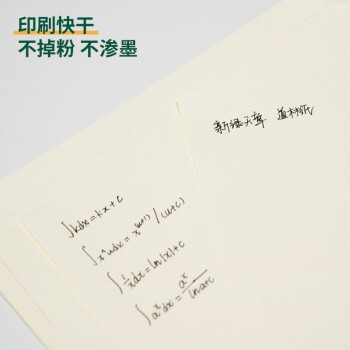 印刷快干
不掉粉 不渗墨
新绿天章 道林纸
∫kdx=kx+c
∫x^u dx=x^(u+1)/(u+c)
∫1/x dx=ln|x|+c
∫a^x dx=a^x/lna+c